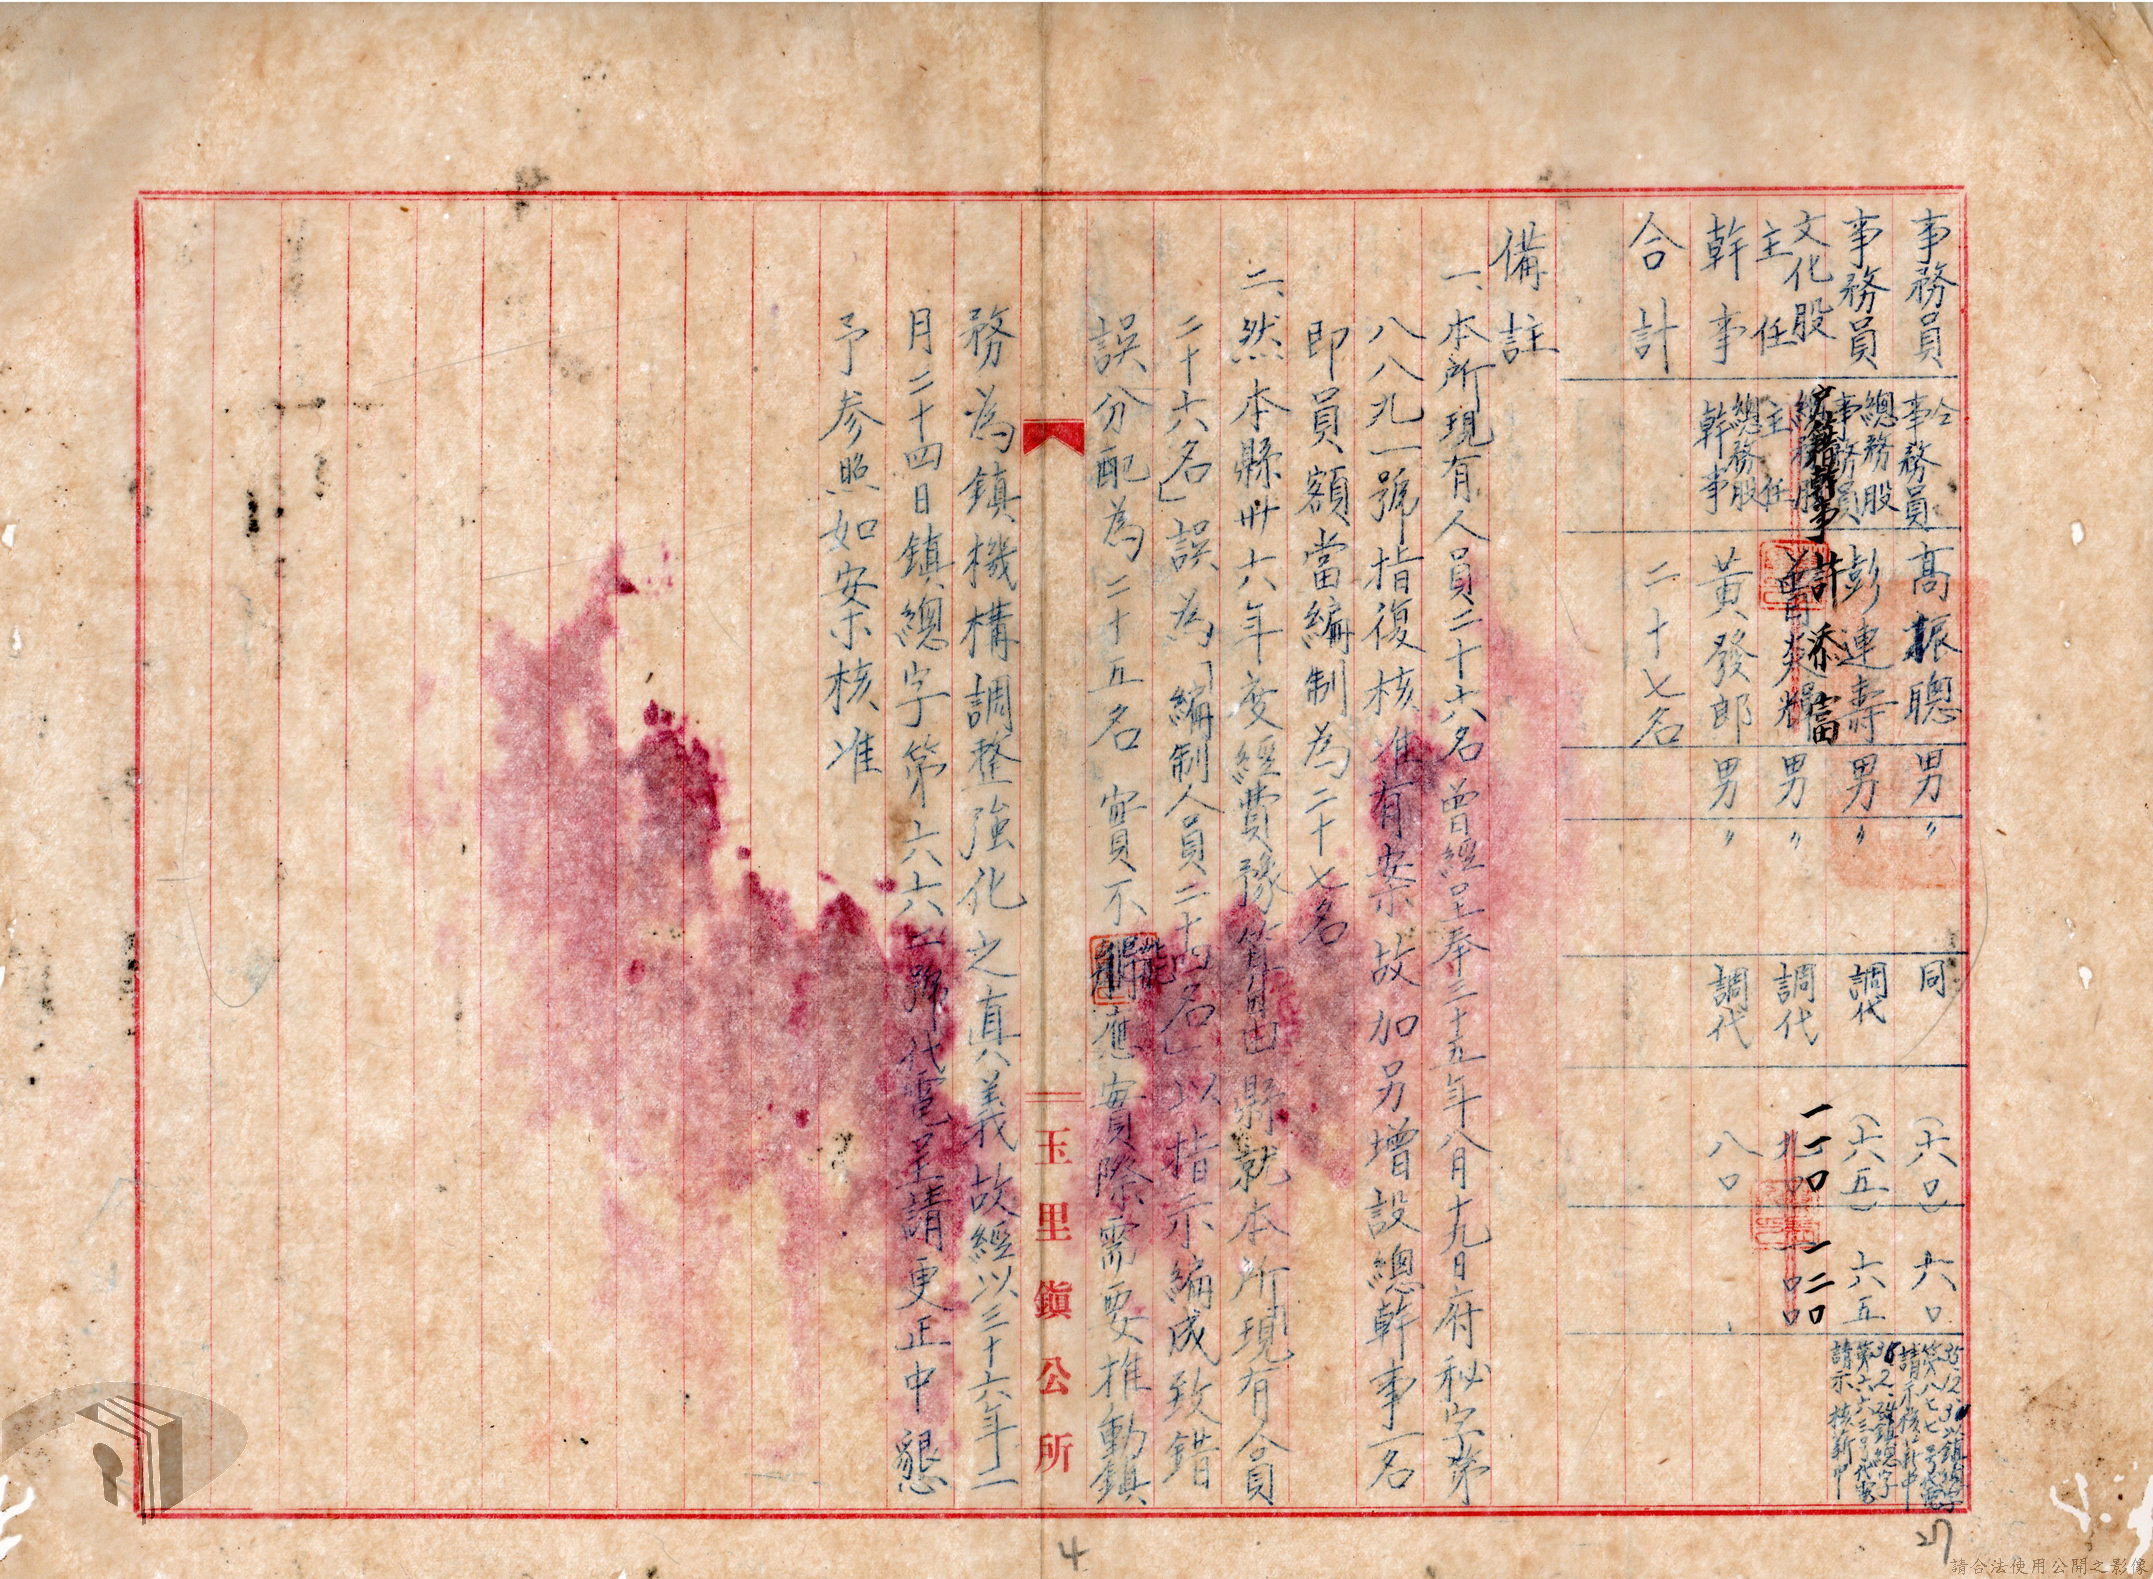 事務員 仝事務員 高振聰 男 〃 同 (六〇) 六〇
事務員 總務股事務員 彭連壽 男 〃 調代 (六五) 六五
第六六三号代電
請示核薪中
文化股主任 總務股主任 男 〃 調代
戶籍幹事 許添富 一一〇 一二〇
幹事 總務股幹事 黃發郎 男 〃 調代 八〇
合計 二十七名
備註
一、本所現有人員二十六名曾經呈奉三十五年八月十九日府秘字第
八八九一號指復核准有案故加另增設總幹事一名
即員額當編制為二十七名
二、然本縣卅六年度經費豫算由縣就本所現有人員
二十六名」誤為「編制人員二十六名」以指示編成致錯
誤分配為二十五名實不能應實際需要推動鎮
玉里鎮公所
務為鎮機構調整強化之真義故經以三十六年二
月二十四日鎮總字第六六三號代電呈請更正中懇
予參照如案核准
4
27
請合法使用公開之影像